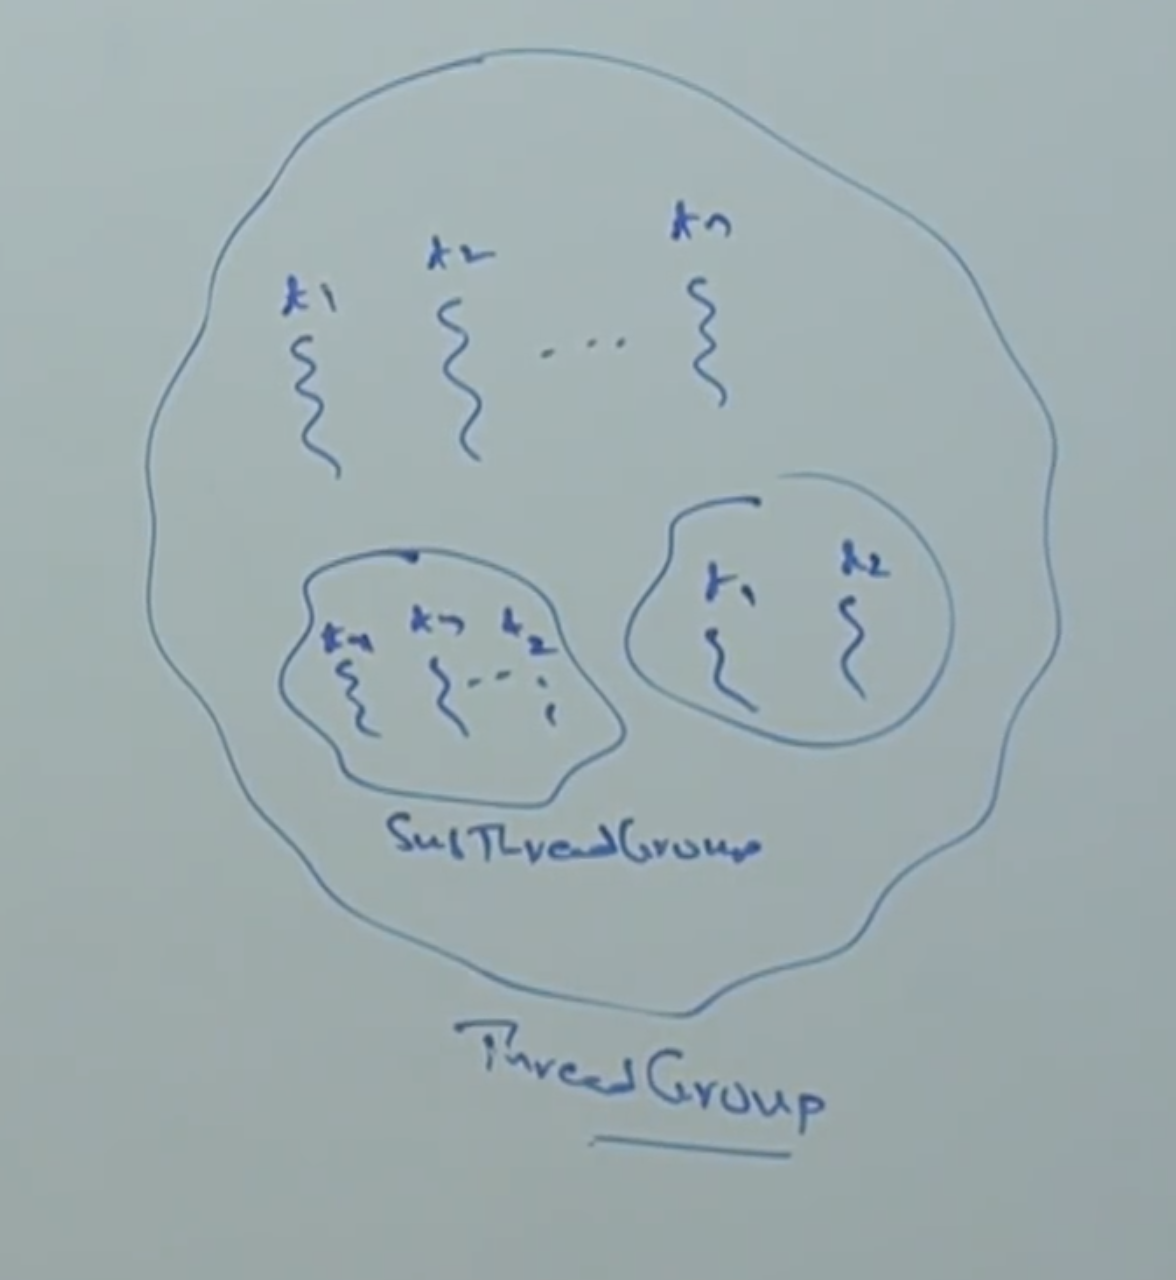 t1 t2 ... tn
t1 t2
tn t2
SubThreadGroup
ThreadGroup